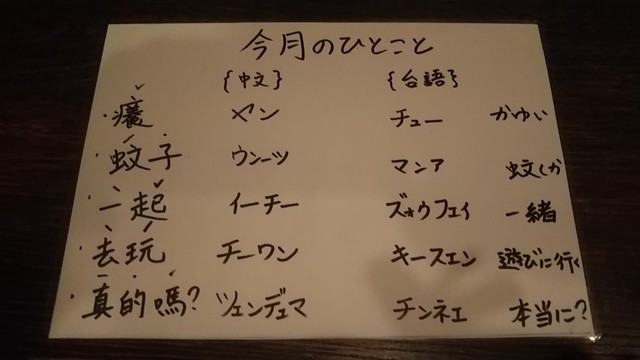 今月のひとこと
{中文} {台語}
・癢 ヤン チュー かゆい
・蚊子 ウンーツ マンア 蚊(か
・一起 イーチー ズゥウフェイ 一緒
・去玩 チーワン キースエン 遊びに行く
・真的嗎? ツェンデュマ チンネエ 本当に?